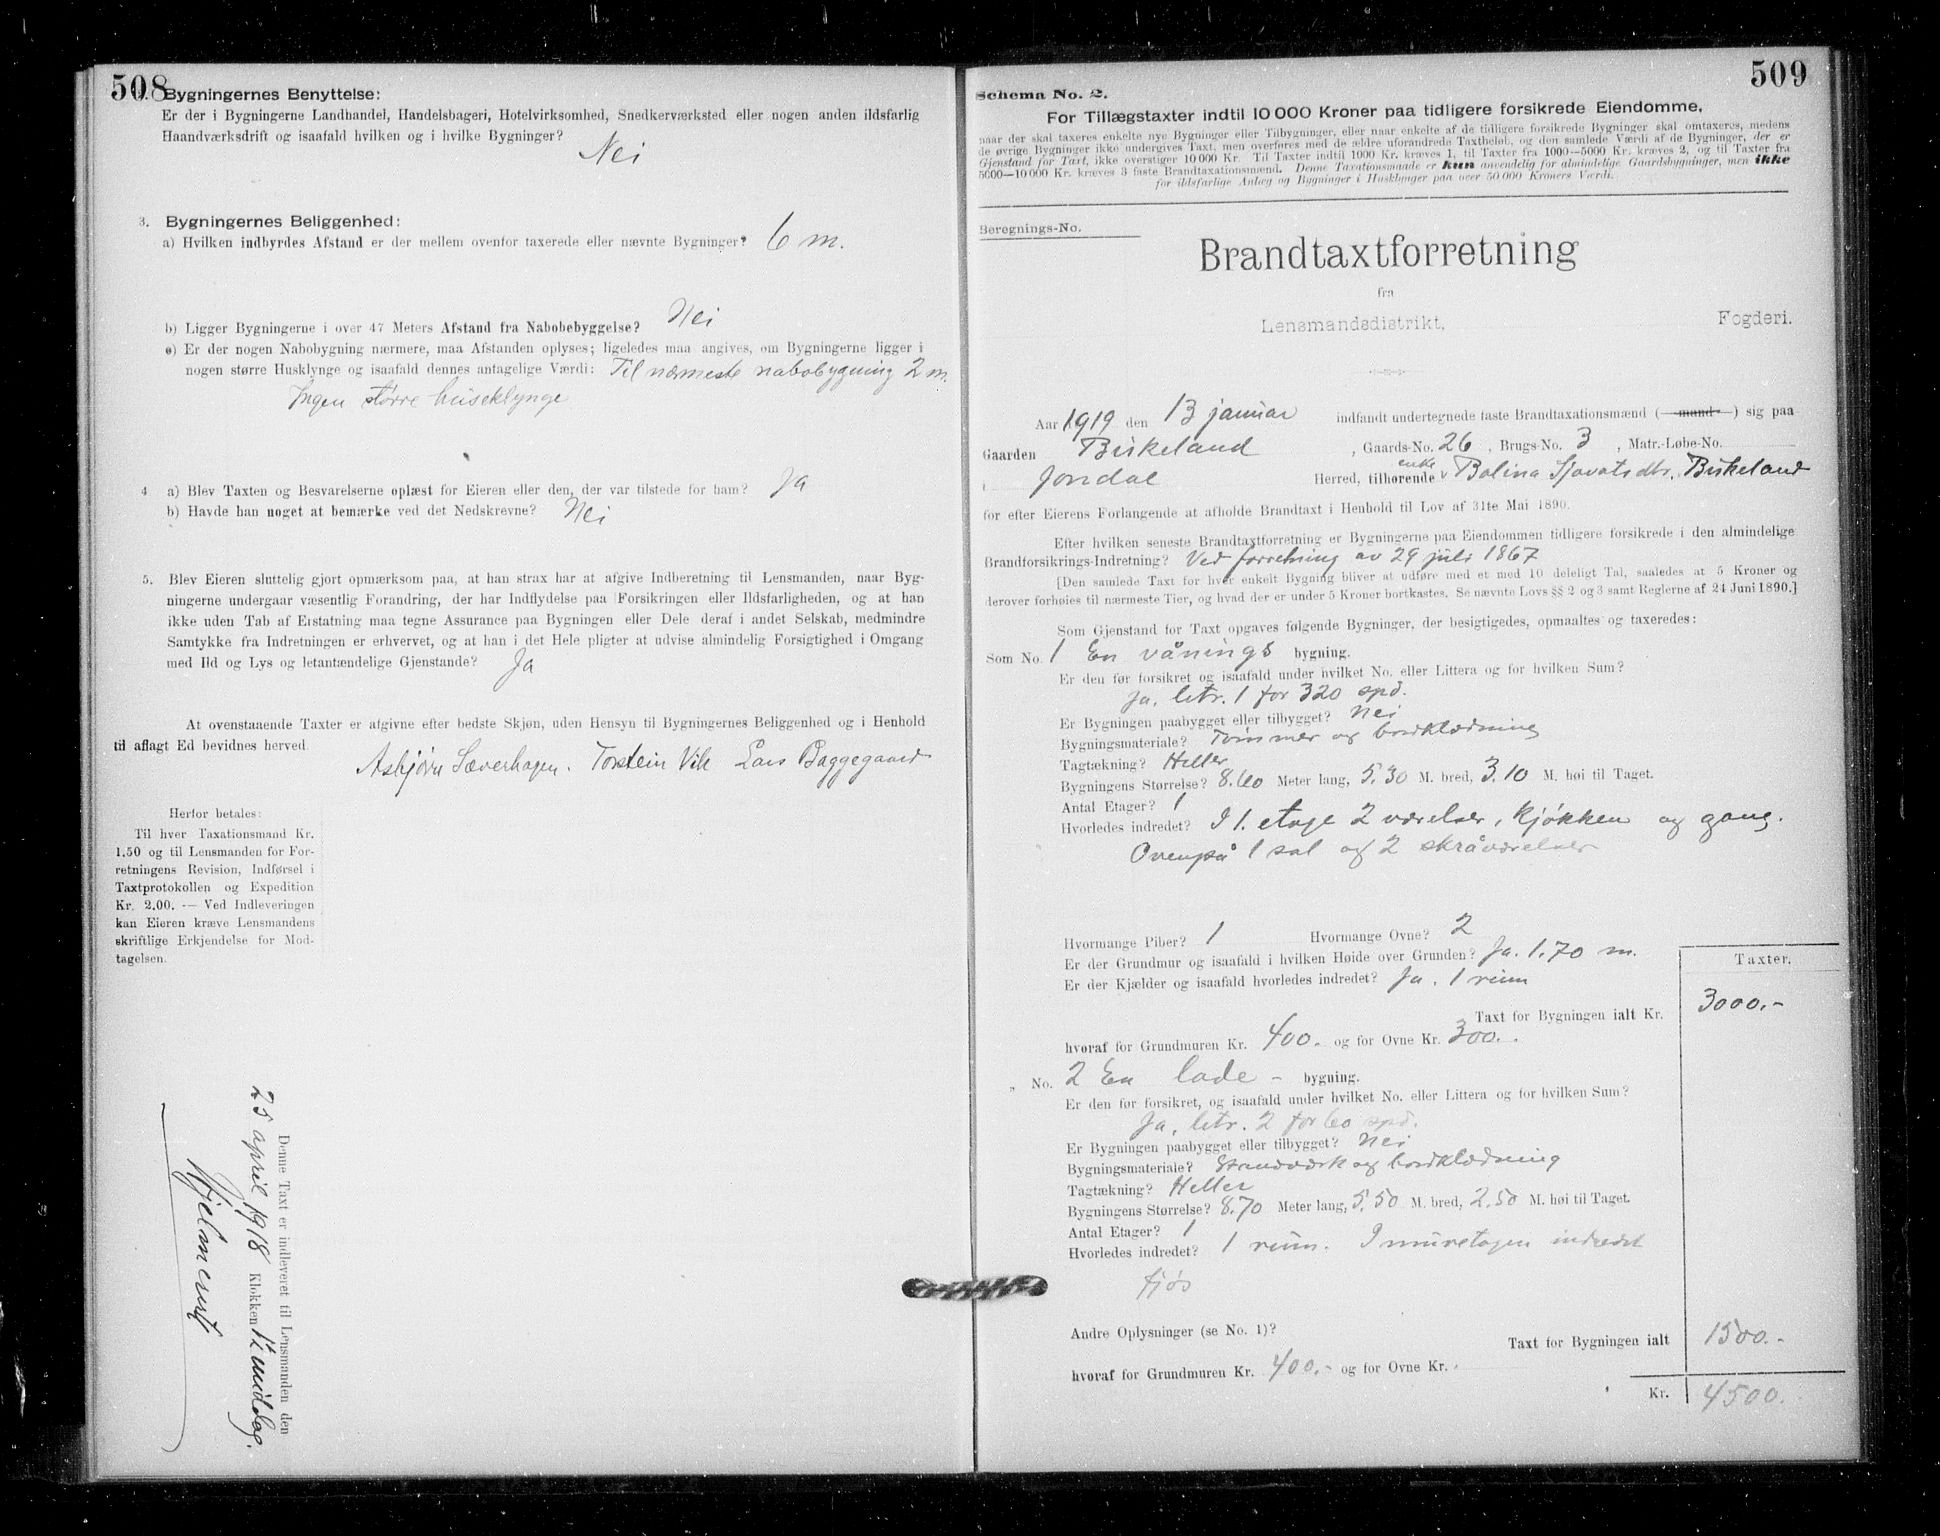 508
2. Bygningernes Benyttelse:
Er der i Bygningerne Landhandel, Handelsbageri, Hotelvirksomhed, Snedkerværksted eller nogen anden ildsfarlig
Haandværksdrift og isaafald hvilken og i hvilke Bygninger?
Nei
3. Bygningernes Beliggenhed:
a) Hvilken indbyrdes Afstand er der mellem ovenfor taxerede eller nævnte Bygninger? 6 m.
b) Ligger Bygningerne i over 47 Meters Afstand fra Nabobebyggelse? Nei
c) Er der nogen Nabobygning nærmere, maa Afstanden oplyses; ligeledes maa angives, om Bygningerne ligger i
nogen større Husklynge og isaafald dennes antagelige Værdi: Til nærmeste nabobygning 2 m.
Ingen større huseklynge
4. a) Blev Taxten og Besvarelserne oplæst for Eieren eller den, der var tilstede for ham? Ja
b) Havde han noget at bemærke ved det Nedskrevne? Nei
5. Blev Eieren sluttelig gjort opmærksom paa, at han strax har at afgive Indberetning til Lensmanden, naar Byg-
ningerne undergaar væsentlig Forandring, der har Indflydelse paa Forsikringen eller Ildsfarligheden, og at han
ikke uden Tab af Erstatning maa tegne Assurance paa Bygningen eller Dele deraf i andet Selskab, medmindre
Samtykke fra Indretningen er erhvervet, og at han i det Hele pligter at udvise almindelig Forsigtighed i Omgang
med Ild og Lys og letantændelige Gjenstande? Ja
At ovenstaaende Taxter er afgivne efter bedste Skjøn, uden Hensyn til Bygningernes Beliggenhed og i Henhold
til aflagt Ed bevidnes herved
Asbjørn Sæverhagen. Torstein Vik Lars Baggegaard
Herfor betales:
Til hver Taxationsmand Kr.
1.50 og til Lensmanden for For-
retningens Revision, Indførsel i
Taxtprotokollen og Expedition
Kr. 2.00. — Ved Indleveringen
kan Eieren kræve Lensmandens
skriftlige Erkjendelse for Mod-
tagelsen.
Denne Taxt er indleveret til Lensmanden den
25 april 1918 Klokken 12 middag.
509
Schema No. 2.
For Tillægstaxter indtil 10 000 Kroner paa tidligere forsikrede Eiendomme,
naar der skal taxeres enkelte nye Bygninger eller Tilbygninger, eller naar enkelte af de tidligere forsikrede Bygninger skal omtaxeres, medens
de øvrige Bygninger ikke undergives Taxt, men overføres med de ældre uforandrede Taxtbeløb, og den samlede Værdi af de Bygninger, der er
Gjenstand for Taxt, ikke overstiger 10 000 Kr. Til Taxter indtil 1000 Kr. kræves 1, til Taxter fra 1000—5000 Kr. kræves 2, og til Taxter fra
5000—10 000 Kr. kræves 3 faste Brandtaxationsmænd. Denne Taxationsmaade er kun anvendelig for almindelige Gaardsbygninger, men ikke
for ildsfarlige Anlæg og Bygninger i Husklynger paa over 50 000 Kroners Værdi.
Beregnings-No.
Brandtaxtforretning
fra
Lensmandsdistrikt, Fogderi.
Aar 1919 den 13 januar indfandt undertegnede faste Brandtaxationsmænd (—mand—) sig paa
Gaarden Birkeland, Gaards-No. 26, Brugs-No. 3, Matr.-Løbe-No.
i Jondal Herred, tilhørende enke Bolina Sjovatsdtr. Birkeland
for efter Eierens Forlangende at afholde Brandtaxt i Henhold til Lov af 31te Mai 1890.
Efter hvilken seneste Brandtaxtforretning er Bygningerne paa Eiendommen tidligere forsikrede i den almindelige
Brandforsikrings-Indretning? Ved forretning av 29 juli 1867
[Den samlede Taxt for hver enkelt Bygning bliver at udføre med et med 10 deleligt Tal, saaledes at 5 Kroner og
derover forhøies til nærmeste Tier, og hvad der er under 5 Kroner bortkastes. Se nævnte Lovs §§ 2 og 3 samt Reglerne af 24 Juni 1890.]
Som Gjenstand for Taxt opgaves følgende Bygninger, der besigtigedes, opmaaltes og taxeredes:
Som No. 1 En vånings bygning.
Er den før forsikret og isaafald under hvilket No. eller Littera og for hvilken Sum?
Ja, litr. 1 for 320 spd.
Er Bygningen paabygget eller tilbygget? Nei
Bygningsmateriale? Tømmer og bordklædning
Tagtækning? Heller
Bygningens Størrelse? 8.60 Meter lang, 5.30 M. bred, 3.10 M. høi til Taget.
Antal Etager? 1
Hvorledes indredet? I 1. etage 2 værelser, kjøkken og gang.
Ovenpå 1 sal og 2 skråværelser
Hvormange Piber? 1 Hvormange Ovne? 2
Er der Grundmur og isaafald i hvilken Høide over Grunden? Ja. 1.70 m.
Er der Kjælder og isaafald hvorledes indredet? Ja. 1 rum
Taxter.
Taxt for Bygningen ialt Kr. 3000.-
hvoraf for Grundmuren Kr. 400.- og for Ovne Kr. 300.-
„ No. 2 En lade- bygning.
Er den før forsikret, og isaafald under hvilket No. eller Littera og for hvilken Sum?
Ja, litr. 2 for 60 spd.
Er Bygningen paabygget eller tilbygget? Nei
Bygningsmateriale? Standværk og bordklædning
Tagtækning? Heller
Bygningens Størrelse? 8.70 Meter lang, 5.50 M. bred, 2.50 M. høi til Taget.
Antal Etager? 1
Hvorledes indredet? 1 rum. I muretagen indredet
fjøs
Andre Oplysninger (se No. 1)?
Taxt for Bygningen ialt 1500.-
hvoraf for Grundmuren Kr. 400.- og for Ovne Kr.
Kr. 4500.-